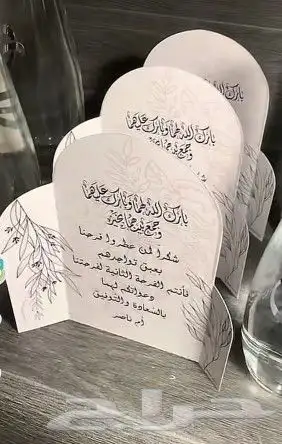 بارك الله لهما وبارك عليهما
وجمع بينهما بخير
بارك الله لهما وبارك عليهما
وجمع بينهما بخير
بارك الله لهما وبارك عليهما
وجمع بينهما بخير
شكرا لمن عطروا فرحنا
بعبق تواجدهم
فأنتم الفرحة الثانية لفرحتنا
ودعواتكم لهما
بالسعادة والتوفيق
أم ناصر
حراج